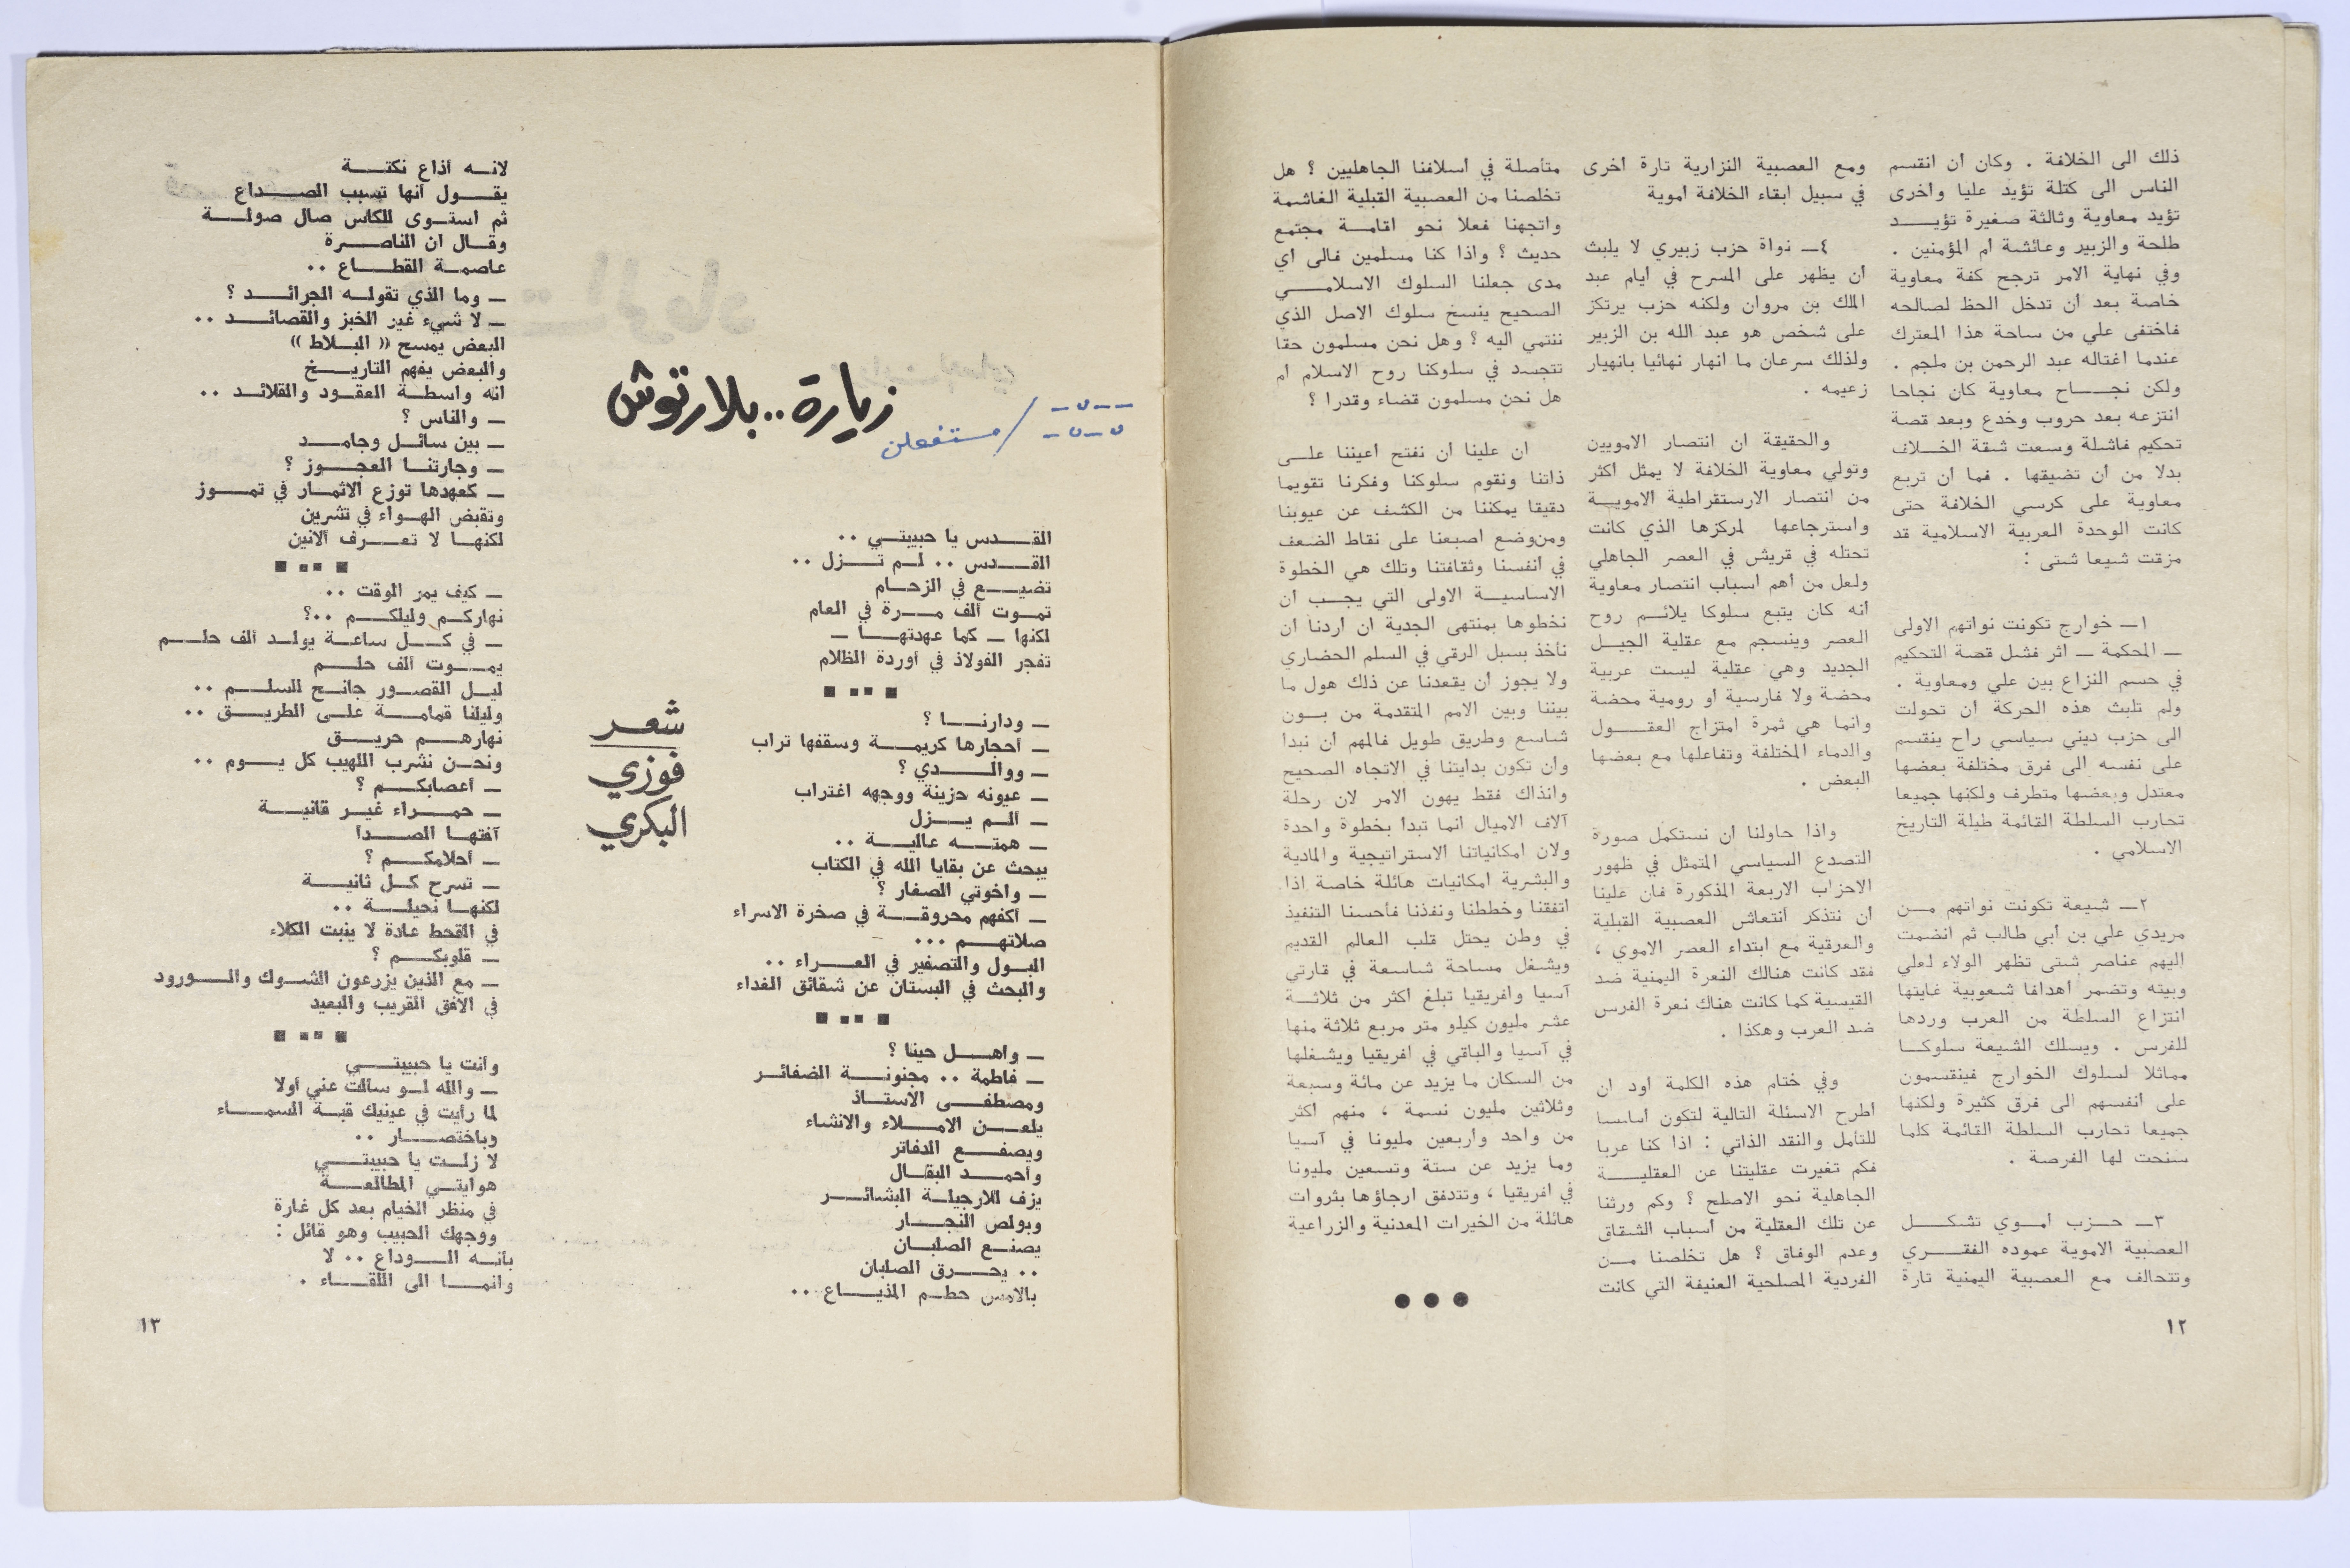 ذلك الى الخلافة . وكان ان انقسم
الناس الى كتلة تؤيد عليا واخرى
تؤيد معاوية وثالثة صغيرة تؤيـــد
طلحة والزبير وعائشة ام المؤمنين .
وفي نهاية الامر ترجح كفة معاوية
خاصة بعد ان تدخل الحظ لصالحه
فاختفى علي من ساحة هذا المعترك
عندما اغتاله عبد الرحمن بن ملجم .
ولكن نجـــاح معاوية كان نجاحا
انتزعه بعد حروب وخدع وبعد قصة
تحكيم فاشلة وسعت شقة الخــلاف
بدلا من ان تضيقها . فما ان تربع
معاوية على كرسي الخلافة حتى
كانت الوحدة العربية الاسلامية قد
مزقت شيعا شتى :
١ــ خوارج تكونت نواتهم الاولى
ــ المحكمة ــ اثر فشل قصة التحكيم
في حسم النزاع بين علي ومعاوية .
ولم تلبث هذه الحركة ان تحولت
الى حزب ديني سياسي راح ينقسم
على نفسه الى فرق مختلفة بعضها
معتدل وبعضها متطرف ولكنها جميعا
تحارب السلطة القائمة طيلة التاريخ
الاسلامي .
٢ــ شيعة تكونت نواتهم مــن
مريدي علي بن ابي طالب ثم انضمت
اليهم عناصر شتى تظهر الولاء لعلي
وبيته وتضمر اهدافا شعوبية غايتها
انتزاع السلطة من العرب وردها
للفرس . ويسلك الشيعة سلوكــا
مماثلا لسلوك الخوارج فينقسمون
على انفسهم الى فرق كثيرة ولكنها
جميعا تحارب السلطة القائمة كلما
سنحت لها الفرصة .
٣ــ حــزب امــوي تشكـــل
العصبية الاموية عموده الفقــري
وتتحالف مع العصبية اليمنية تارة
ومع العصبية النزارية تارة اخرى
في سبيل ابقاء الخلافة اموية
٤ــ نواة حزب زبيري لا يلبث
ان يظهر على المسرح في ايام عبد
الملك بن مروان ولكنه حزب يرتكز
على شخص هو عبد الله بن الزبير
ولذلك سرعان ما انهار نهائيا بانهيار
زعيمه .
والحقيقة ان انتصار الامويين
وتولي معاوية الخلافة لا يمثل اكثر
من انتصار الارستقراطية الامويــة
واسترجاعها لمركزها الذي كانت
تحتله في قريش في العصر الجاهلي
ولعل من اهم اسباب انتصار معاوية
انه كان يتبع سلوكا يلائـم روح
العصر وينسجم مع عقلية الجيــل
الجديد وهي عقلية ليست عربية
محضة ولا فارسية او رومية محضة
وانما هي ثمرة امتزاج العقـــول
والدماء المختلفة وتفاعلها مع بعضها
البعض .
واذا حاولنا ان نستكمل صورة
التصدع السياسي المتمثل في ظهور
الاحزاب الاربعة المذكورة فان علينا
ان نتذكر انتعاش العصبية القبلية
والعرقية مع ابتداء العصر الاموي ،
فقد كانت هنالك النعرة اليمنية ضد
القيسية كما كانت هناك نعرة الفرس
ضد العرب وهكذا .
وفي ختام هذه الكلمة اود ان
اطرح الاسئلة التالية لتكون اساسا
للتأمل والنقد الذاتي : اذا كنا عربا
فكم تغيرت عقليتنا عن العقليـــة
الجاهلية نحو الاصلح ؟ وكم ورثنا
عن تلك العقلية من اسباب الشقاق
وعدم الوفاق ؟ هل تخلصنا مــن
الفردية المصلحية العنيفة التي كانت
متأصلة في اسلافنا الجاهليين ؟ هل
تخلصنا من العصبية القبلية الغاشمة
واتجهنا فعلا نحو اقامــة مجتمع
حديث ؟ واذا كنا مسلمين فالى اي
مدى جعلنا السلوك الاسلامـــي
الصحيح ينسخ سلوك الاصل الذي
ننتمي اليه ؟ وهل نحن مسلمون حقا
تتجسد في سلوكنا روح الاسلام ام
هل نحن مسلمون قضاء وقدرا ؟
ان علينا ان نفتح اعيننا علــى
ذاتنا ونقوم سلوكنا وفكرنا تقويما
دقيقا يمكننا من الكشف عن عيوبنا
ومن وضع اصبعنا على نقاط الضعف
في انفسنا وثقافتنا وتلك هي الخطوة
الاساسيــة الاولى التي يجــب ان
نخطوها بمنتهى الجدية ان اردنا ان
نأخذ بسبل الرقي في السلم الحضاري
ولا يجوز ان يقعدنا عن ذلك هول ما
بيننا وبين الامم المتقدمة من بــون
شاسع وطريق طويل فالمهم ان نبدا
وان تكون بدايتنا في الاتجاه الصحيح
وانذاك فقط يهون الامر لان رحلة
آلاف الاميال انما تبدا بخطوة واحدة
ولان امكانياتنا الاستراتيجية والمادية
والبشرية امكانيات هائلة خاصة اذا
اتفقنا وخططنا ونفذنا فأحسنا التنفيذ
في وطن يحتل قلب العالم القديم
ويشغل مساحة شاسعة في قارتي
آسيا وافريقيا تبلغ اكثر من ثلاثــة
عشر مليون كيلو متر مربع ثلاثة منها
في آسيا والباقي في افريقيا ويشغلها
من السكان ما يزيد عن مائة وسبعة
وثلاثين مليون نسمة ، منهم اكثر
من واحد واربعين مليونا في آسيا
وما يزيد عن ستة وتسعين مليونا
في افريقيا ، وتتدفق ارجاؤها بثروات
هائلة من الخيرات المعدنية والزراعية
١٢
زيارة .. بلا رتوش
مستفعلن /
شعر
فوزي
البكري
القـــدس يا حبيبتـــي ..
القـــدس .. لــم تـــزل ..
تضيـــع في الزحــام
تمــوت ألف مـــرة في العام
لكنها ــ كما عهدتهـــا ــ
تفجر الفولاذ في أوردة الظلام
ــ ودارنـــا ؟
ــ أحجارها كريمـــة وسقفها تراب
ــ ووالـــــدي ؟
ــ عيونه حزينة ووجهه اغتراب
ــ ألـــم يـــزل
ــ همتـــه عاليـــة ..
يبحث عن بقايا الله في الكتاب
ــ واخوتي الصغار ؟
ــ أكفهم محروقـــة في صخرة الاسراء
صلاتهـــم ...
البــول والتصفير في العــــراء ..
والبحث في البستان عن شقائق الفداء
ــ واهـــل حينا ؟
ــ فاطمة .. مجنونـــة الضفائــر
ومصطفـــى الاستــاذ
يلعـــن الامـــلاء والانشاء
ويصفـــع الدفاتر
وأحمــد البقــال
يزف للارجيلــة البشائـــر
وبولص النجـــار
يصنــع الصلبــان
.. يحـــرق الصلبان
بالامس حطــم المذيـــاع ..
لانــه أذاع نكتـــة
يقـــول أنها تسبب الصـــداع
ثم استــوى للكاس صال صولـــة
وقــال ان الناصـــرة
عاصمــة القطـــاع ..
ــ وما الذي تقولــه الجرائـــد ؟
ــ لا شيء غير الخبز والقصائـــد ..
البعض يمسح (( البــلاط ))
والبعض يفهم التاريـــخ
انه واسطــة العقــود والقلائــد ..
ــ والناس ؟
ــ بين سائــل وجامـــد
ــ وجارتنـــا العجـــوز ؟
ــ كعهدها توزع الاثمــار في تمـــوز
وتقبض الهــواء في تشرين
لكنهـــا لا تعـــرف ألانين
ــ كيف يمر الوقت ..
نهاركــم وليلكـــم ..؟
ــ في كـــل ساعــة يولــد ألف حلـــم
يمـــوت ألف حلـــم
ليــل القصــور جانــح للسلـــم ..
وليلنا قمامـــة علــى الطريـــق ..
نهارهـــم حريـــق
ونحــن نشرب اللهيب كل يـــوم ..
ــ أعصابكـــم ؟
ــ حمـــراء غيــر قانيـــة
آفتهــا الصـــدا
ــ أحلامكـــم ؟
ــ تسرح كــل ثانيـــة
لكنهــا نحيلـــة ..
في القحط عادة لا ينبت الكلاء
ــ قلوبكـــم ؟
ــ مع الذين يزرعون الشــوك والـــورود
في الافق القريب والبعيد
وأنت يا حبيبتـــي
ــ والله لــو سالت عني أولا
لما رأيت في عينيك قبــة السمـــاء
وباختصـــار ..
لا زلــت يا حبيبتـــي
هوايتــي المطالعـــة
في منظر الخيام بعد كل غارة
ووجهك الحبيب وهو قائل :
بأنــه الـــوداع .. لا
وانمـــا الى اللقـــاء .
١٣